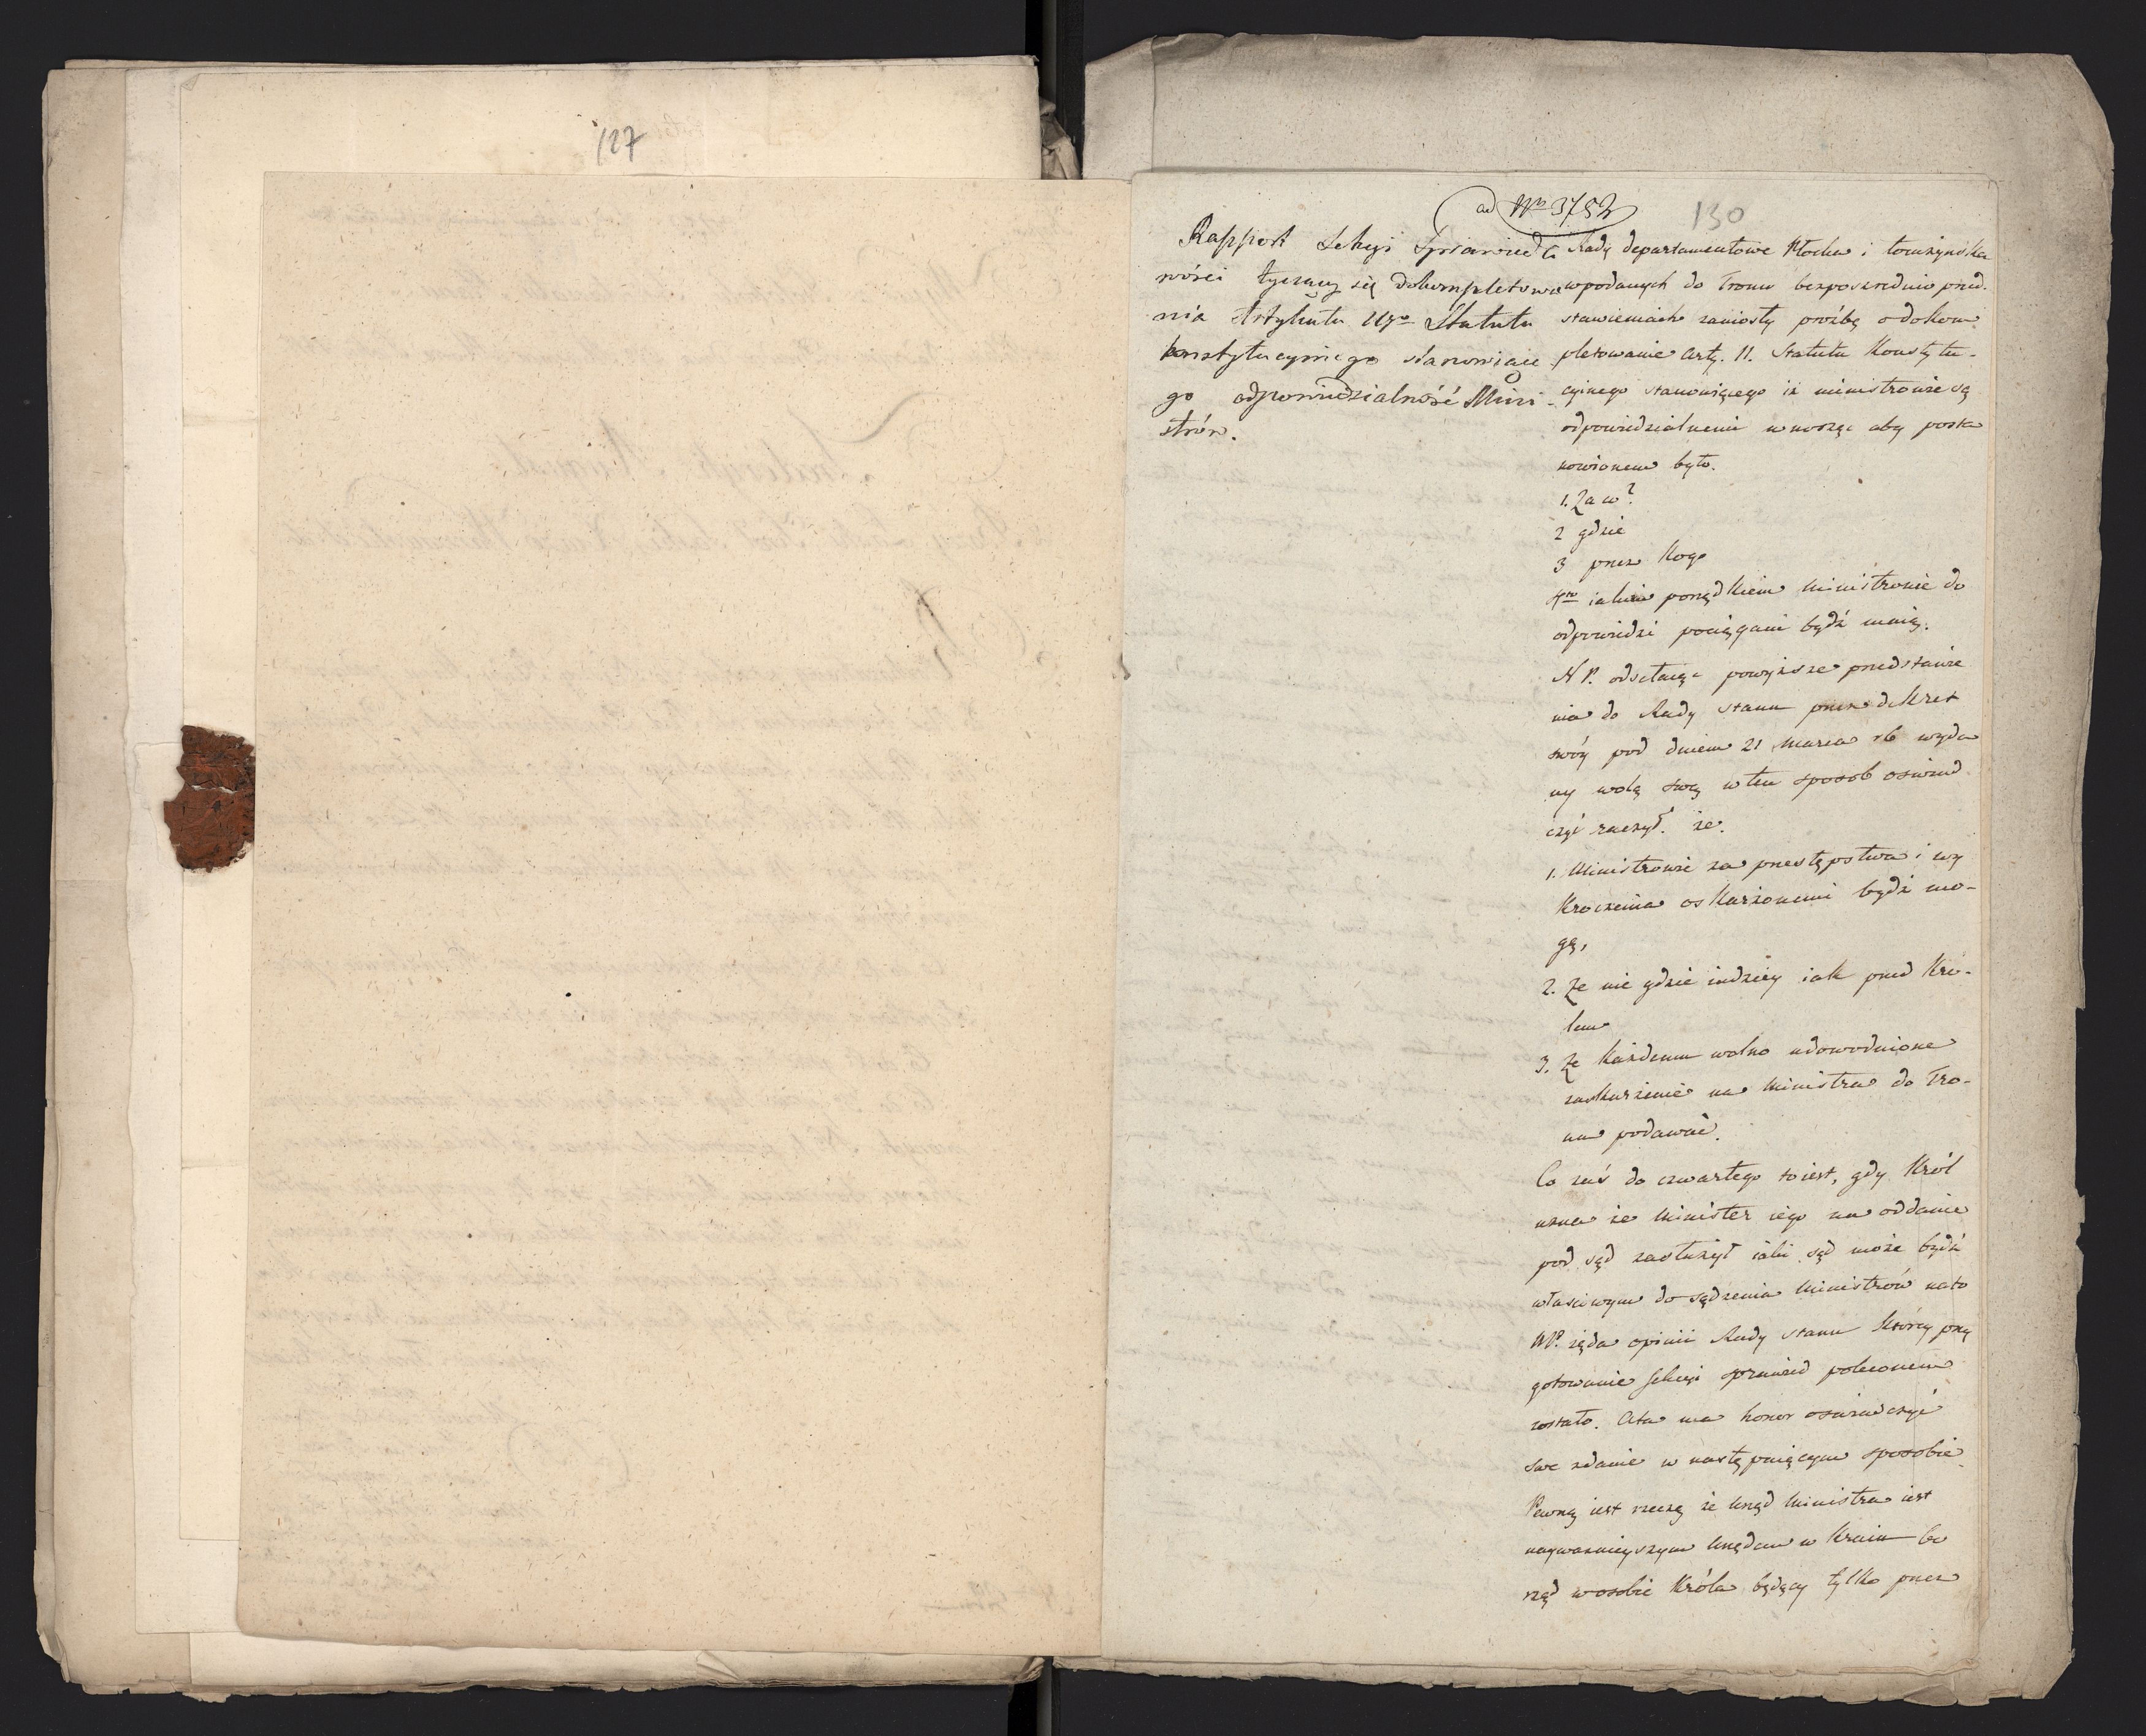 127
ad Nro 3752
130
Rapport Sekcyi Sprawiedli
wości tyczący się dokompletowa
nia Artykułu 11go Statutu
konstytucyinego stanowiące
go odpowiedzialność Mini-
strów.
Rady departamentowe Płocka i Łomżyńska
w podanych do Tronu bezpośrednio przed-
stawieniach zaniosły prośbę o dokom
pletowanie Arty. 11. Statutu Konstytu-
cyinego stanowiącego iż ministrowie są
odpowiedzialnemi wnosząc aby posta
nowionem było.
1. Za co?
2 gdzie
3 przez Kogo
4to iakim porządkiem Ministrowie do
odpowiedzi pociągani bydź maią.
N P. odsełaiąc powyższe przedstawie
nia do Rady Stanu przez dekret
swóy pod dniem 21 Marca rb wyda
ny wolą swą w ten sposob oświad
czyć raczył. że.
1. Ministrowie za przestępstwa i wy
Kroczenia oskarżonemi bydź mo-
gą,
2. Że nie gdzie indziey iak przed Kró-
lem
3. Że Każdemu wolno udowodnione
zaskarżenie na Ministra do Tro-
nu podawać.
Co zaś do czwartego to iest, gdy Król
uzna że Minister iego na oddanie
pod sąd zasłużył iaki sąd może bydź
właściwym do sądzenia Ministrów na to
NP. żąda opinii Rady Stanu Którey przy
gotowanie Sekcyi sprawied poleconem
zostało. Ata ma honor oświadczyć
swe zdanie w następuiącym sposobie
Pewną iest rzeczą że urząd Ministra iest
nayważnieyszym urzędem w Kraiu bo
rząd w osobie Króla będący tylko przez